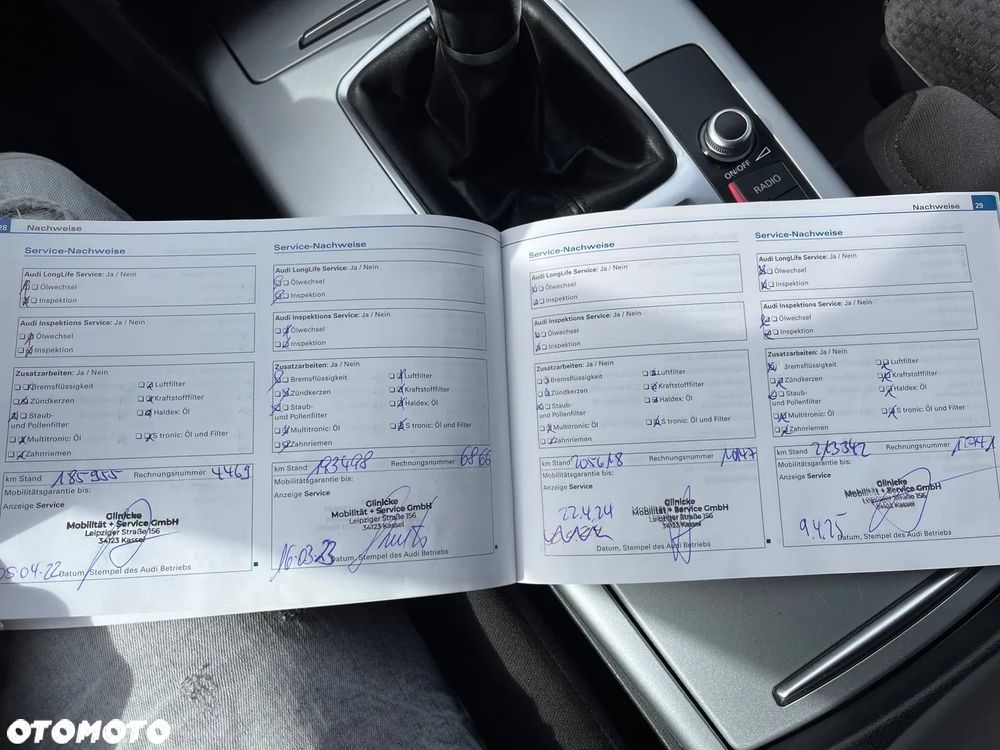 ON/OFF
RADIO
28 Nachweise
Service-Nachweise
Audi LongLife Service: Ja / Nein
Ölwechsel
Inspektion
Audi Inspektions Service: Ja / Nein
Ölwechsel
Inspektion
Zusatzarbeiten: Ja / Nein
Bremsflüssigkeit
Luftfilter
Zündkerzen
Kraftstofffilter
Staub-
und Pollenfilter
Haldex: Öl
Multitronic: Öl
S tronic: Öl und Filter
Zahnriemen
km Stand 185955 Rechnungsnummer 4469
Mobilitätsgarantie bis:
Anzeige Service
Glinicke
Mobilität + Service GmbH
Leipziger Straße 156
34123 Kassel
05.04.22 Datum, Stempel des Audi Betriebs
Service-Nachweise
Audi LongLife Service: Ja / Nein
Ölwechsel
Inspektion
Audi Inspektions Service: Ja / Nein
Ölwechsel
Inspektion
Zusatzarbeiten: Ja / Nein
Bremsflüssigkeit
Luftfilter
Zündkerzen
Kraftstofffilter
Staub-
und Pollenfilter
Haldex: Öl
Multitronic: Öl
S tronic: Öl und Filter
Zahnriemen
km Stand 193498 Rechnungsnummer 6866
Mobilitätsgarantie bis:
Anzeige Service
Glinicke
Mobilität + Service GmbH
Leipziger Straße 156
34123 Kassel
16.03.23
Datum, Stempel des Audi Betriebs
Nachweise 29
Service-Nachweise
Audi LongLife Service: Ja / Nein
Ölwechsel
Inspektion
Audi Inspektions Service: Ja / Nein
Ölwechsel
Inspektion
Zusatzarbeiten: Ja / Nein
Bremsflüssigkeit
Luftfilter
Zündkerzen
Kraftstofffilter
Staub-
und Pollenfilter
Haldex: Öl
Multitronic: Öl
S tronic: Öl und Filter
Zahnriemen
km Stand 205618 Rechnungsnummer
Mobilitätsgarantie bis:
Anzeige Service
Glinicke
Mobilität + Service GmbH
Leipziger Straße 156
34123 Kassel
22.4.24
Datum, Stempel des Audi Betriebs
Service-Nachweise
Audi LongLife Service: Ja / Nein
Ölwechsel
Inspektion
Audi Inspektions Service: Ja / Nein
Ölwechsel
Inspektion
Zusatzarbeiten: Ja / Nein
Bremsflüssigkeit
Luftfilter
Zündkerzen
Kraftstofffilter
Staub-
und Pollenfilter
Haldex: Öl
Multitronic: Öl
S tronic: Öl und Filter
Zahnriemen
km Stand 213342 Rechnungsnummer
Mobilitätsgarantie bis:
Anzeige Service
Glinicke
Mobilität + Service GmbH
Leipziger Straße 156
34123 Kassel
9.4.25
Datum, Stempel des Audi Betriebs
OTOMOTO